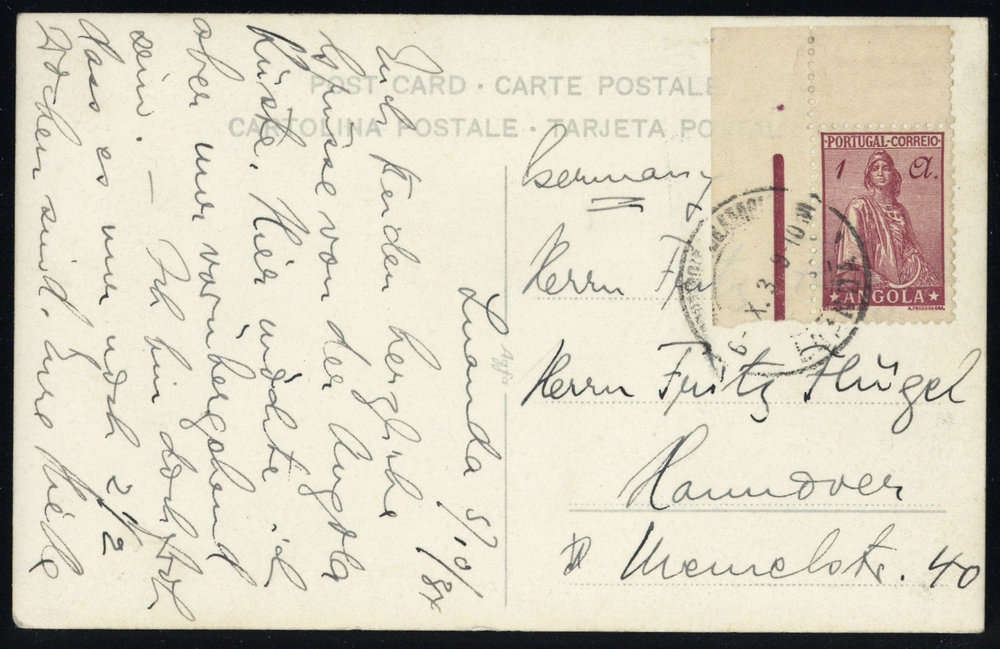 POST CARD · CARTE POSTALE
CARTOLINA POSTALE · TARJETA PO
PORTUGAL-CORREIO
1 A.
ANGOLA
Germany
Herrn
Herrn Fritz Flügel
Hannover
Memelstr. 40
Luanda 5/10/
Euch beiden herzliche
Grüsse von der Angola
Küste. Hier möchte ich
aber nur vorübergehend
sein. — Ich bin doch froh
dass es nur noch 2 1/2
Wochen sind. Eure